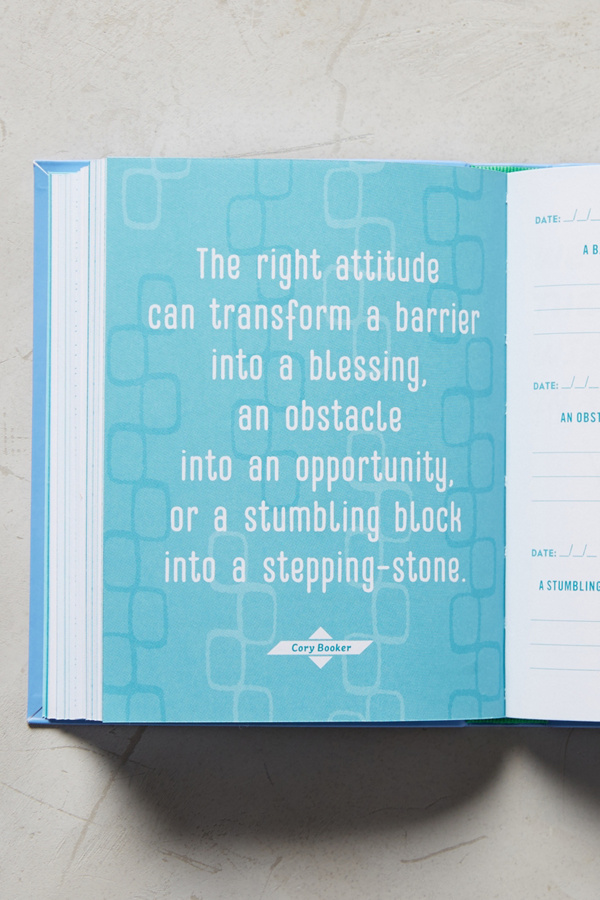 The right attitude
can transform a barrier
into a blessing,
an obstacle
into an opportunity,
or a stumbling block
into a stepping-stone.
Cory Booker
DATE: __/__/__
A B
DATE: __/__/__
AN OBST
DATE: __/__/__
A STUMBLING